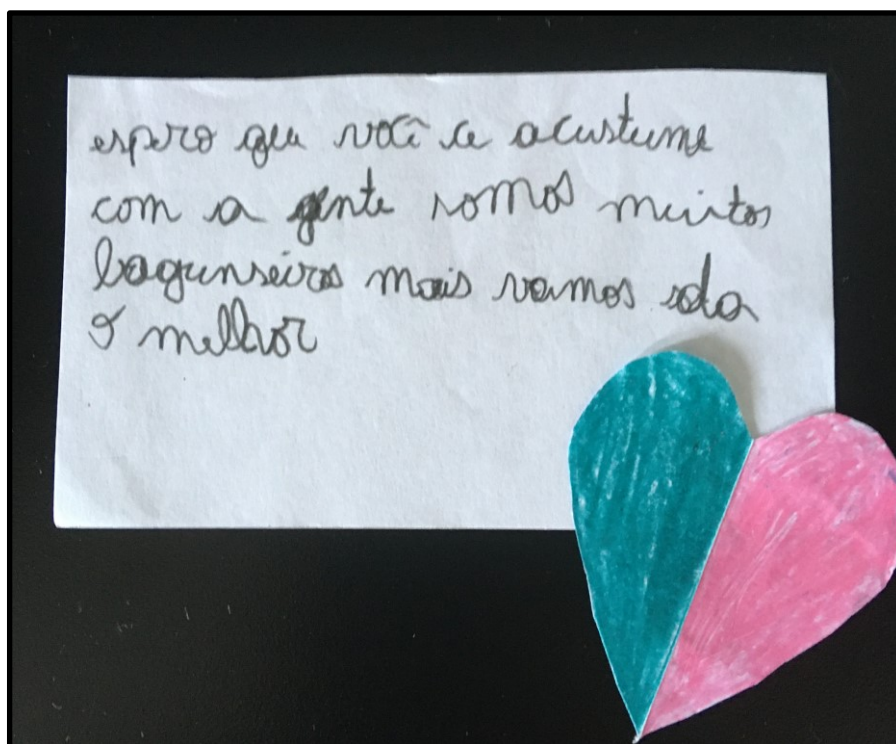 espero que você ce acustume
com a gente somos muitos
bagunseiros mais vamos da
o melhor